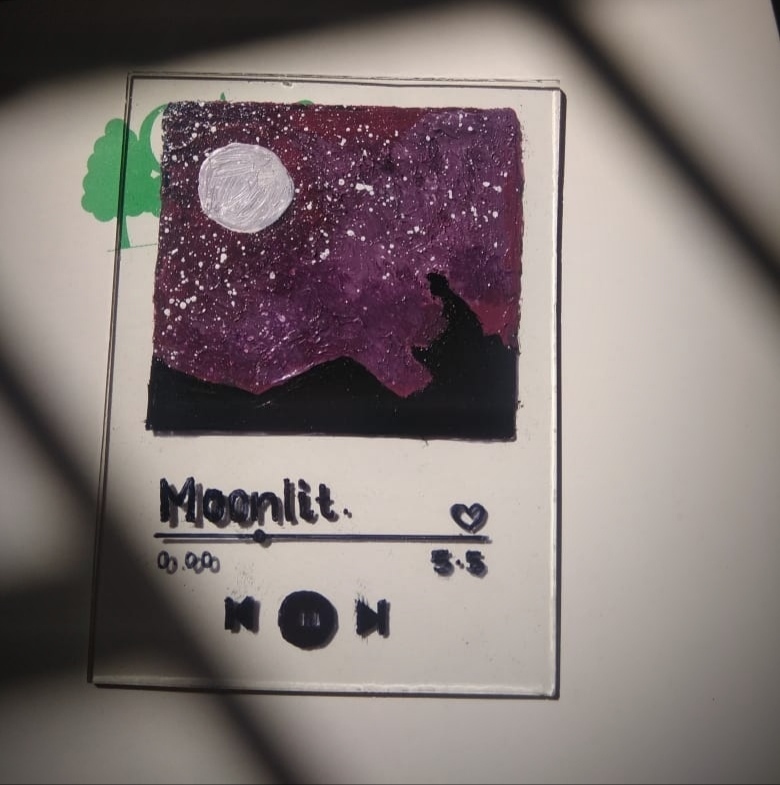 Moonlit.
00.00 5.5